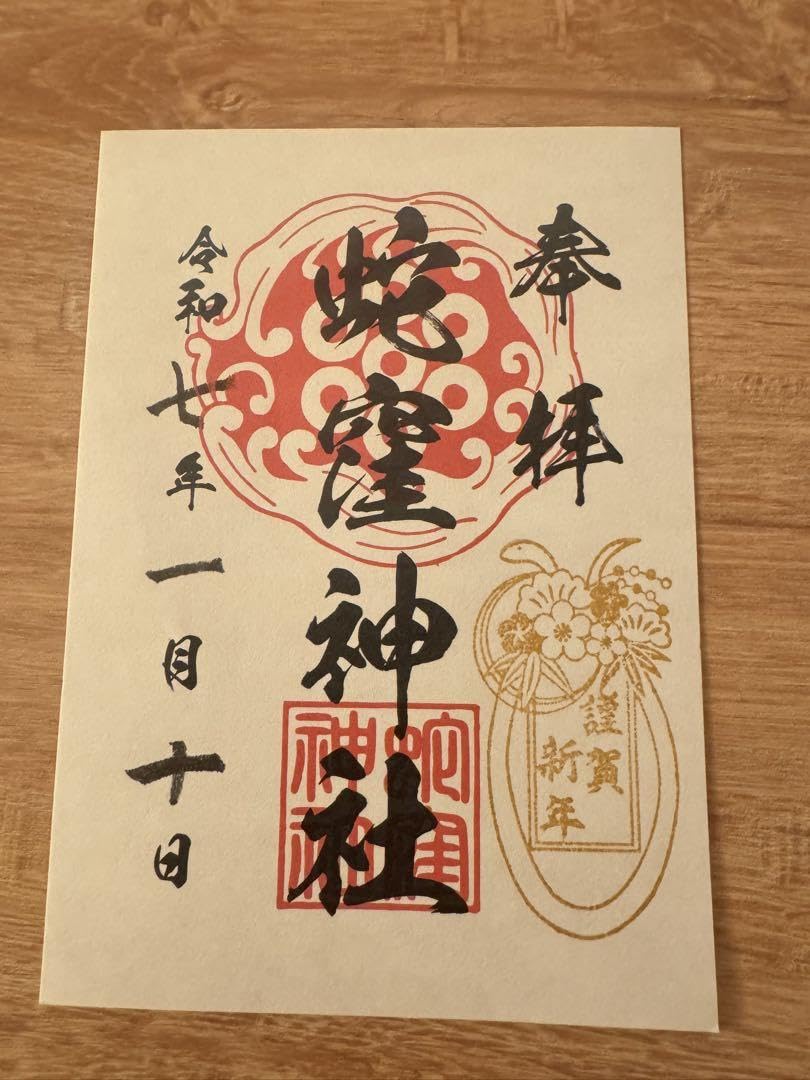 奉拝
蛇窪神社
令和七年一月十日
謹賀
新年
蛇窪
神社